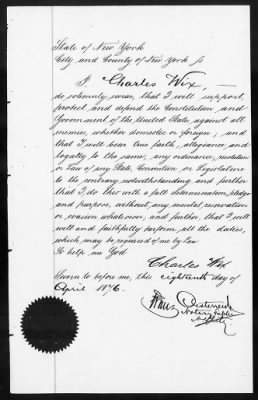 State of New York
City and County of New York ss
I Charles Wix,
do solemnly swear, that I will support,
protect and defend the Constitution, and
Government of the United States, against all
enemies, whether domestic or foreign; and
that I will bear true faith, allegiance, and
loyalty to the same, any ordinance, resolution
or law of any State Convention, or Legislature
to the contrary notwithstanding, and further
that I do this with a full determination, pledge
and purpose, without any mental reservation
or evasion whatsoever, and further, that I will
well and faithfully perform, all the duties,
which may be required of me by law.
So help me God
Charles Wix
Sworn to before me, this eighteenth day of
April 1876.
Notary Public